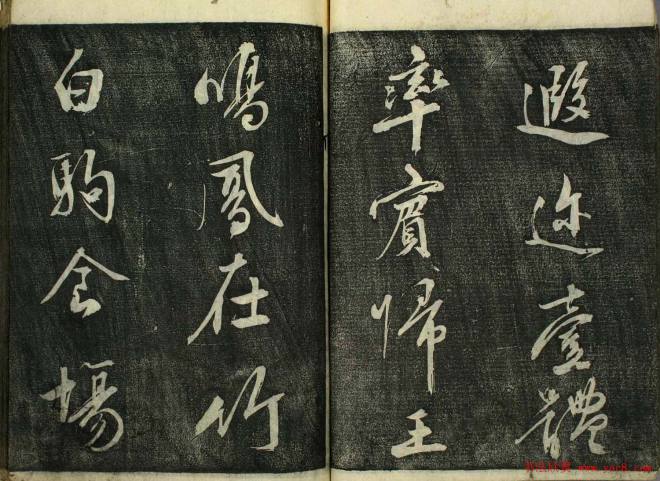 遐迩壹體
率賓歸王
鳴鳳在竹
白駒食場